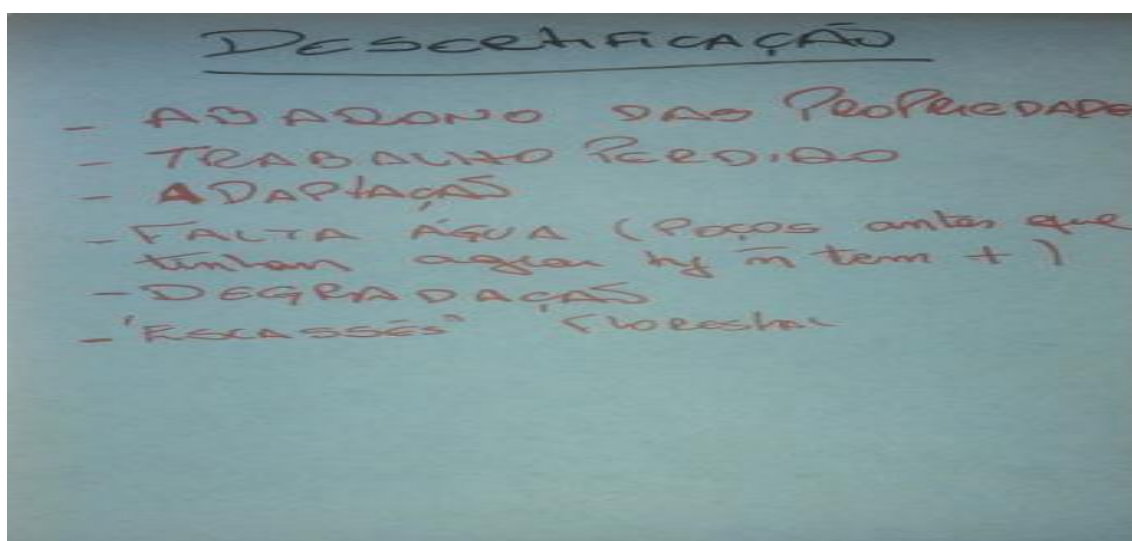 DESCERTIFICAÇÃO
- ABADONO DAS PROPRIEDADE
- TRABALHO PERDIDO
- ADAPTAÇAS
- FALTA ÁGUA (POÇOS antes que
tinham agua hj ñ tem +)
- DEGRADAÇAS
- "ESCASSÊS" FLORESTAL